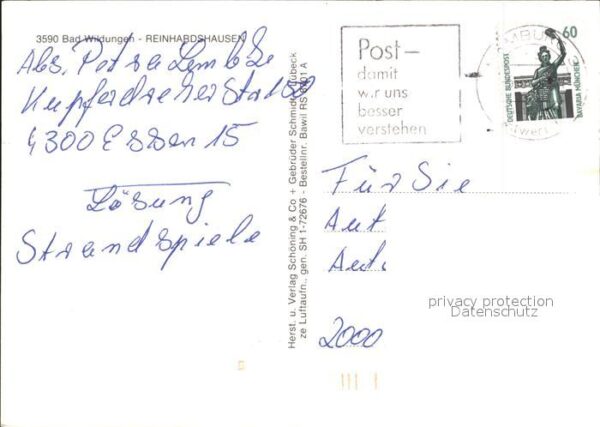 3590 Bad Wildungen - REINHARDSHAUSEN
Abs. Petra Lembke
Kupferdreher Str.
4300 Essen 15
Lösung
Strandspiele
Herst. u. Verlag Schöning & Co + Gebrüder Schmidt, Lübeck
ze Luftaufn., gen. SH 1-72676 - Bestellnr. Bawil RS A
Post –
damit
wir uns
besser
verstehen
60
DEUTSCHE BUNDESPOST
BAVARIA MÜNCHEN
Für Sie
2000
privacy protection
Datenschutz